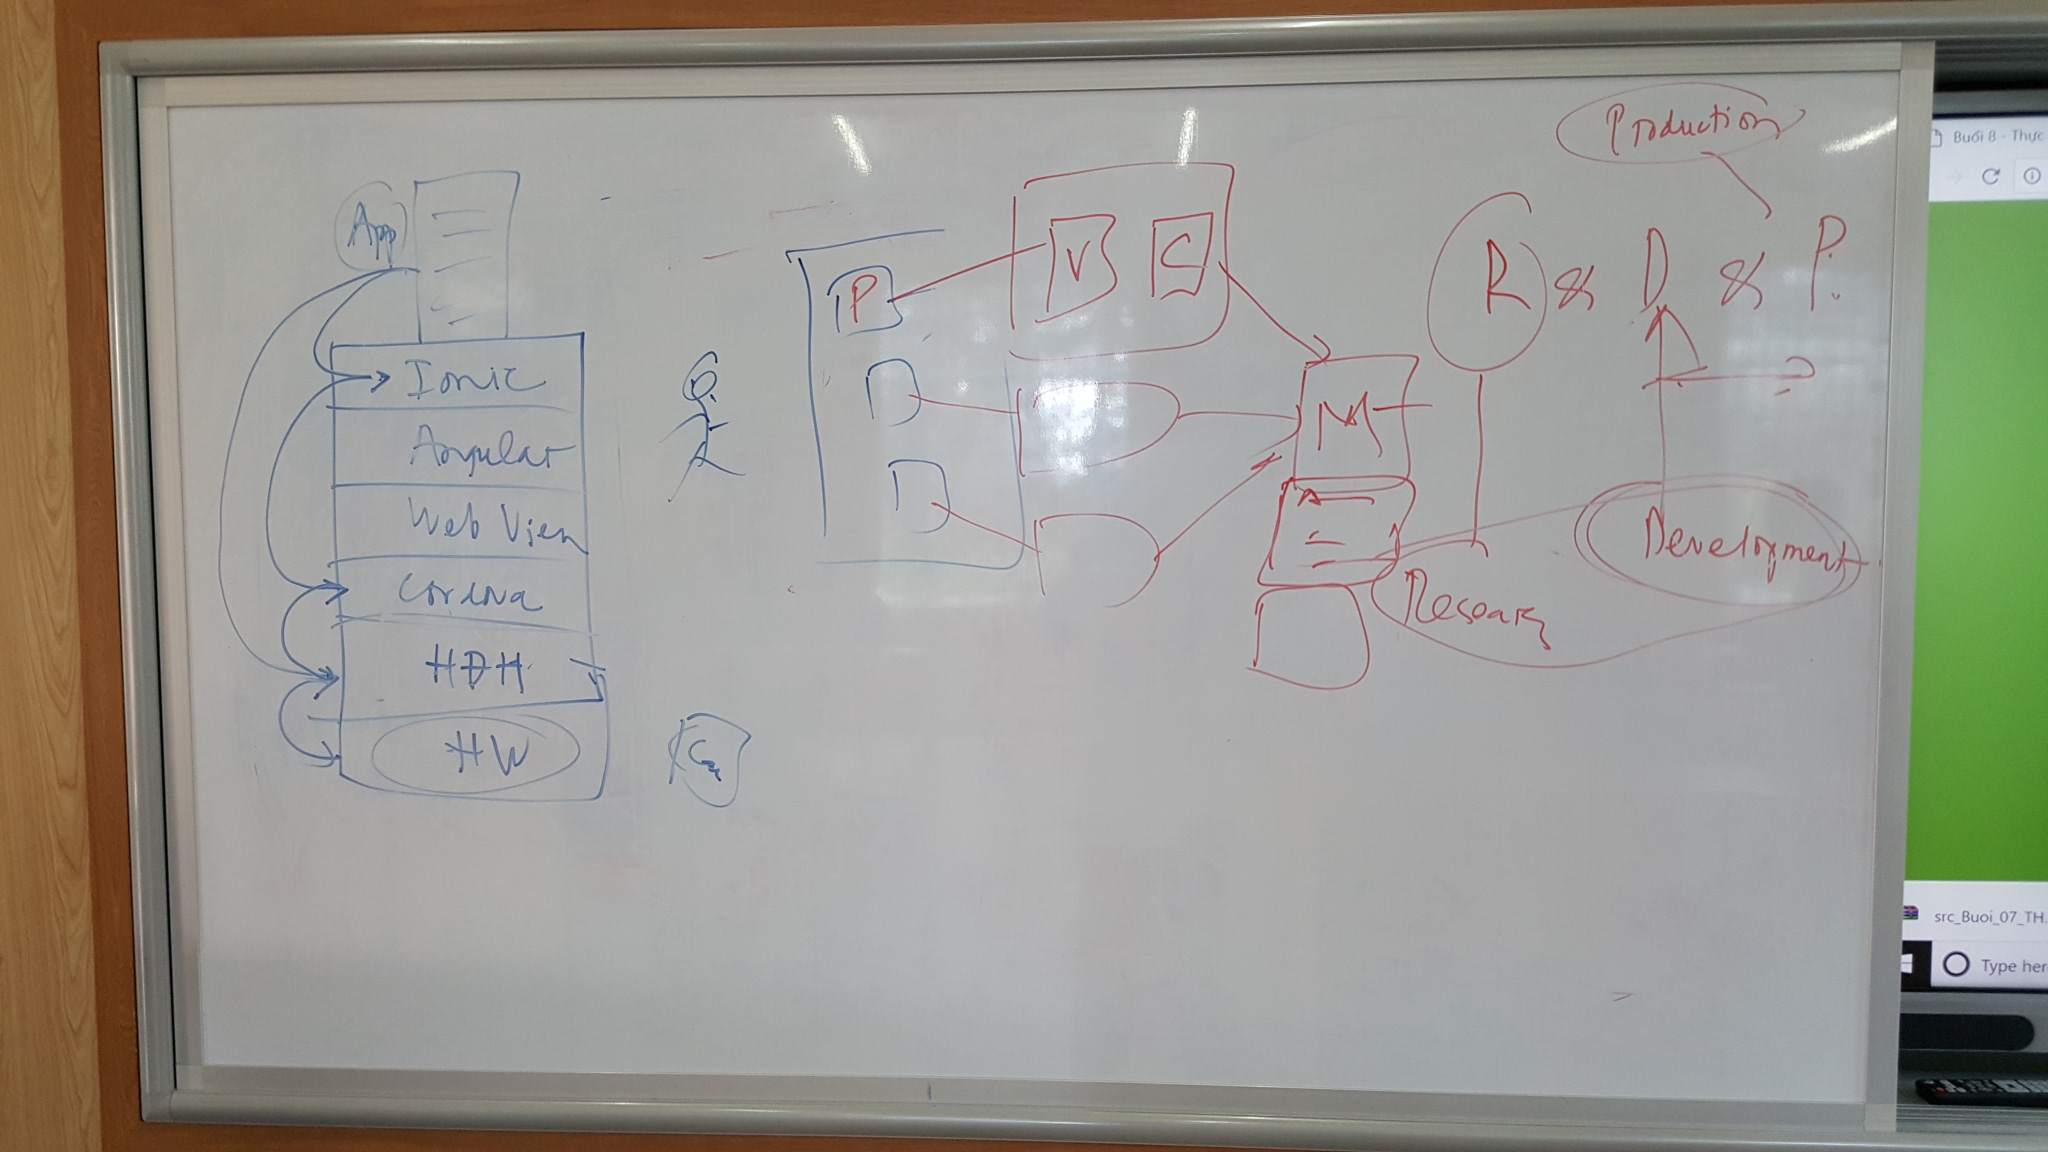 App
Ionic
Angular
Web View
Cordova
HĐH
HW
P
V C
M
Production
R & D & P.
Development
Research
Buổi 8 - Thực
src_Buoi_07_TH.
Type her